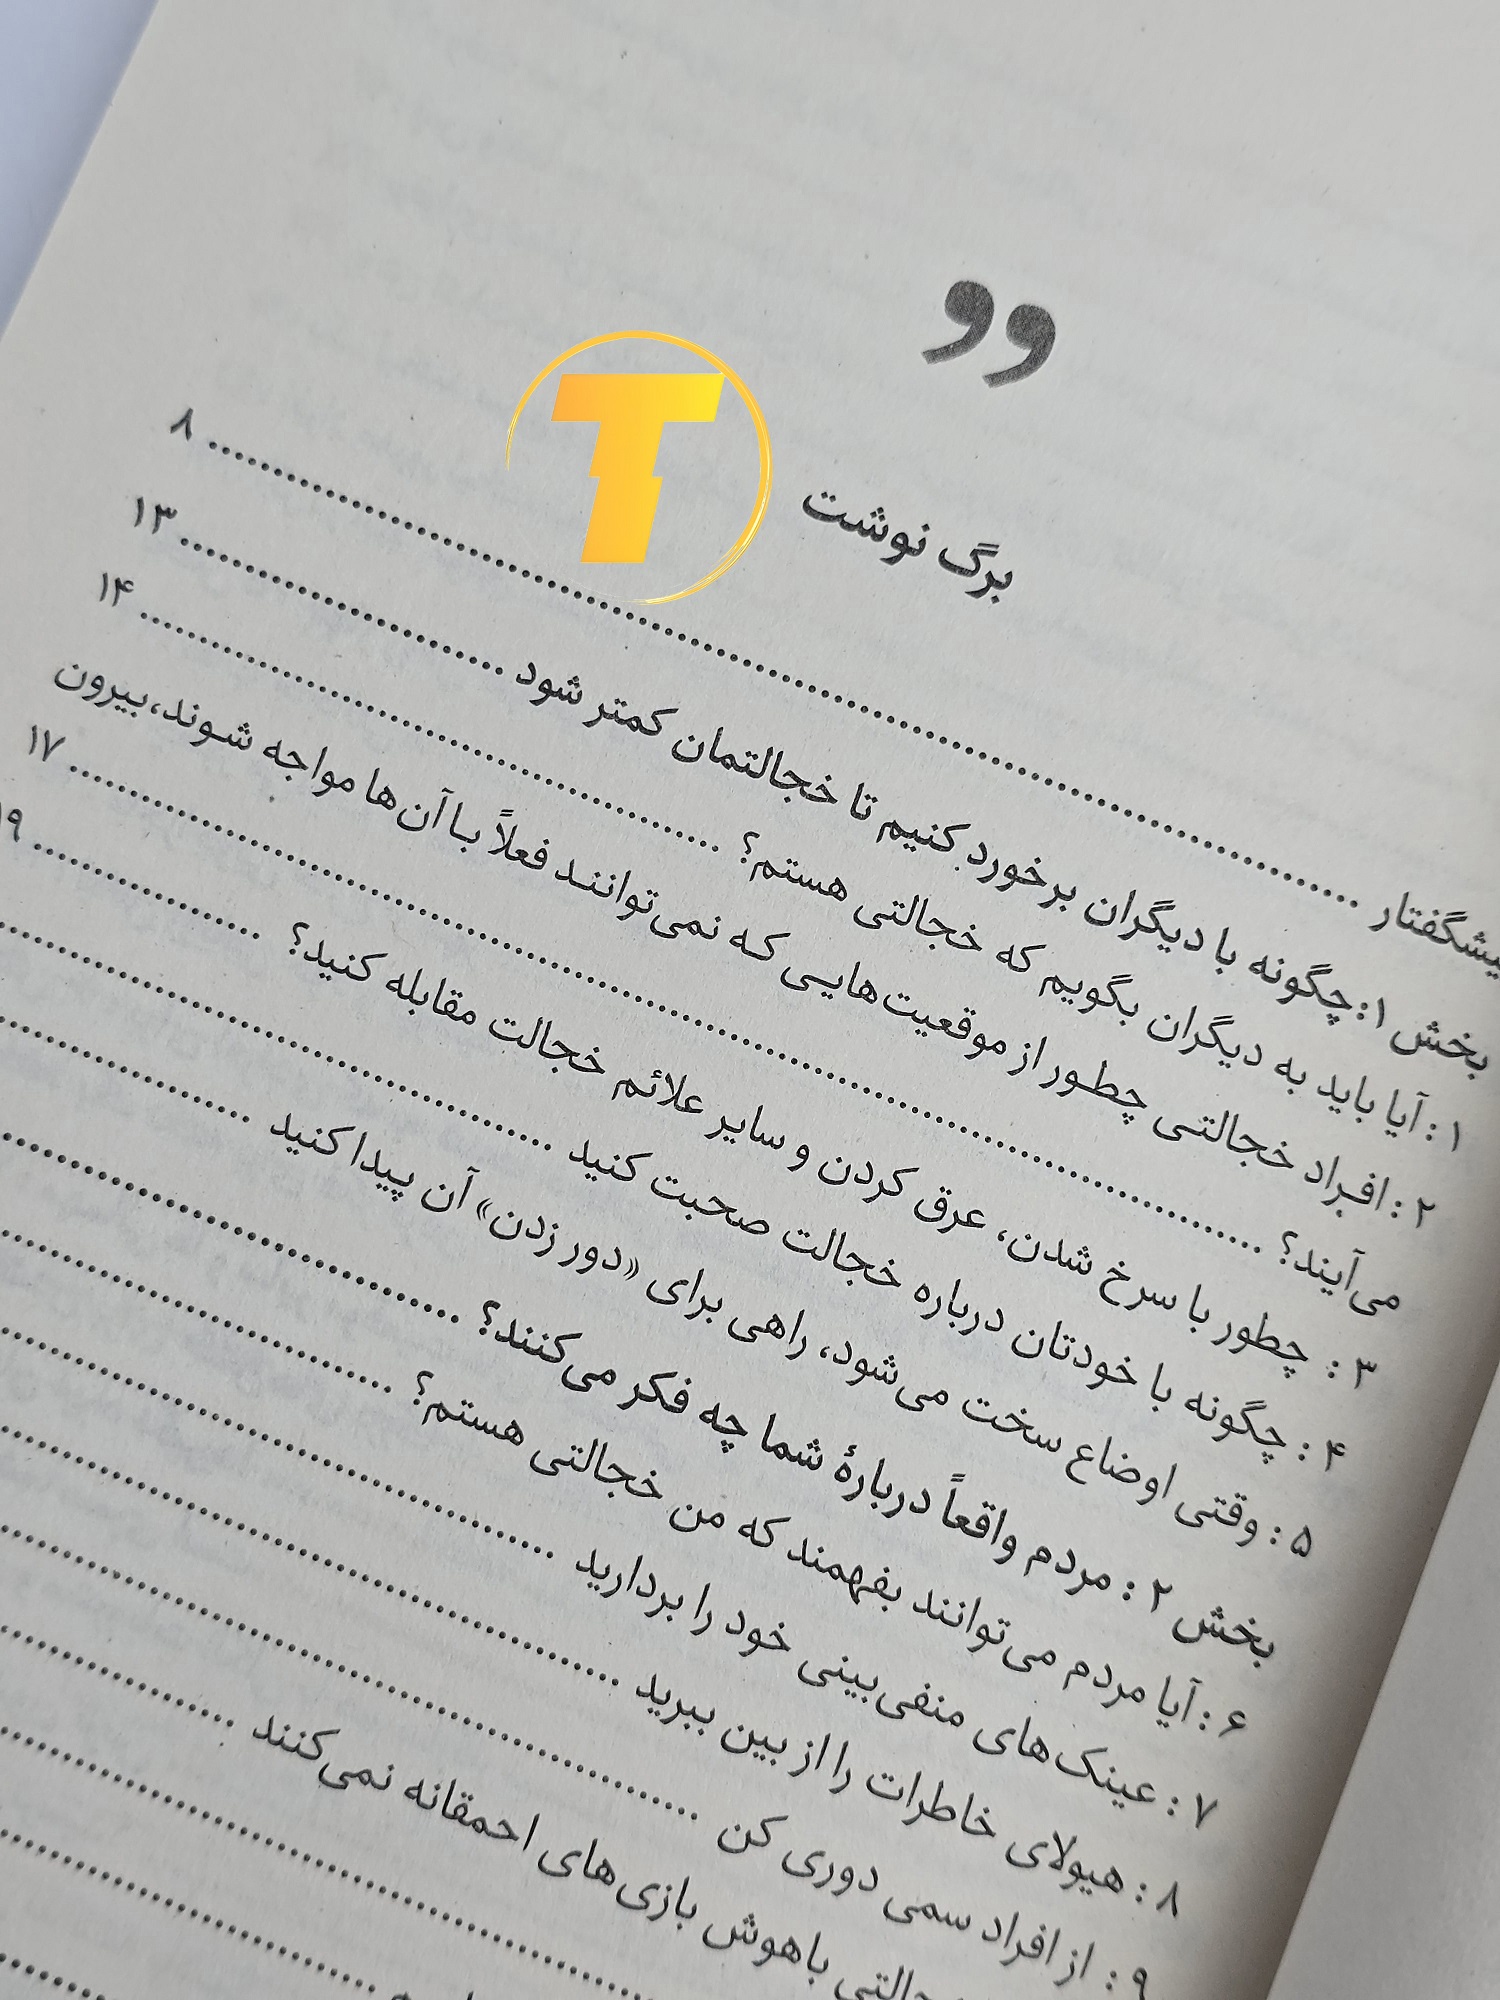 برگ نوشت
پیشگفتار ........ ۸
بخش ۱: چگونه با دیگران برخورد کنیم تا خجالتمان کمتر شود ........ ۱۳
۱: آیا باید به دیگران بگویم که خجالتی هستم؟ ........ ۱۴
۲: افراد خجالتی چطور از موقعیت‌هایی که نمی‌توانند فعلاً با آن‌ها مواجه شوند، بیرون
می‌آیند؟ ........ ۱۷
۳: چطور با سرخ شدن، عرق کردن و سایر علائم خجالت مقابله کنید؟ ........ ۱۹
۴: چگونه با خودتان درباره خجالت صحبت کنید ........
۵: وقتی اوضاع سخت می‌شود، راهی برای «دور زدن» آن پیدا کنید ........
بخش ۲: مردم واقعاً دربارهٔ شما چه فکر می‌کنند؟ ........
۶: آیا مردم می‌توانند بفهمند که من خجالتی هستم؟ ........
۷: عینک‌های منفی‌بینی خود را بردارید ........
۸: هیولای خاطرات را از بین ببرید ........
۹: از افراد سمی دوری کن ........
باهوش بازی‌های احمقانه نمی‌کنند ........